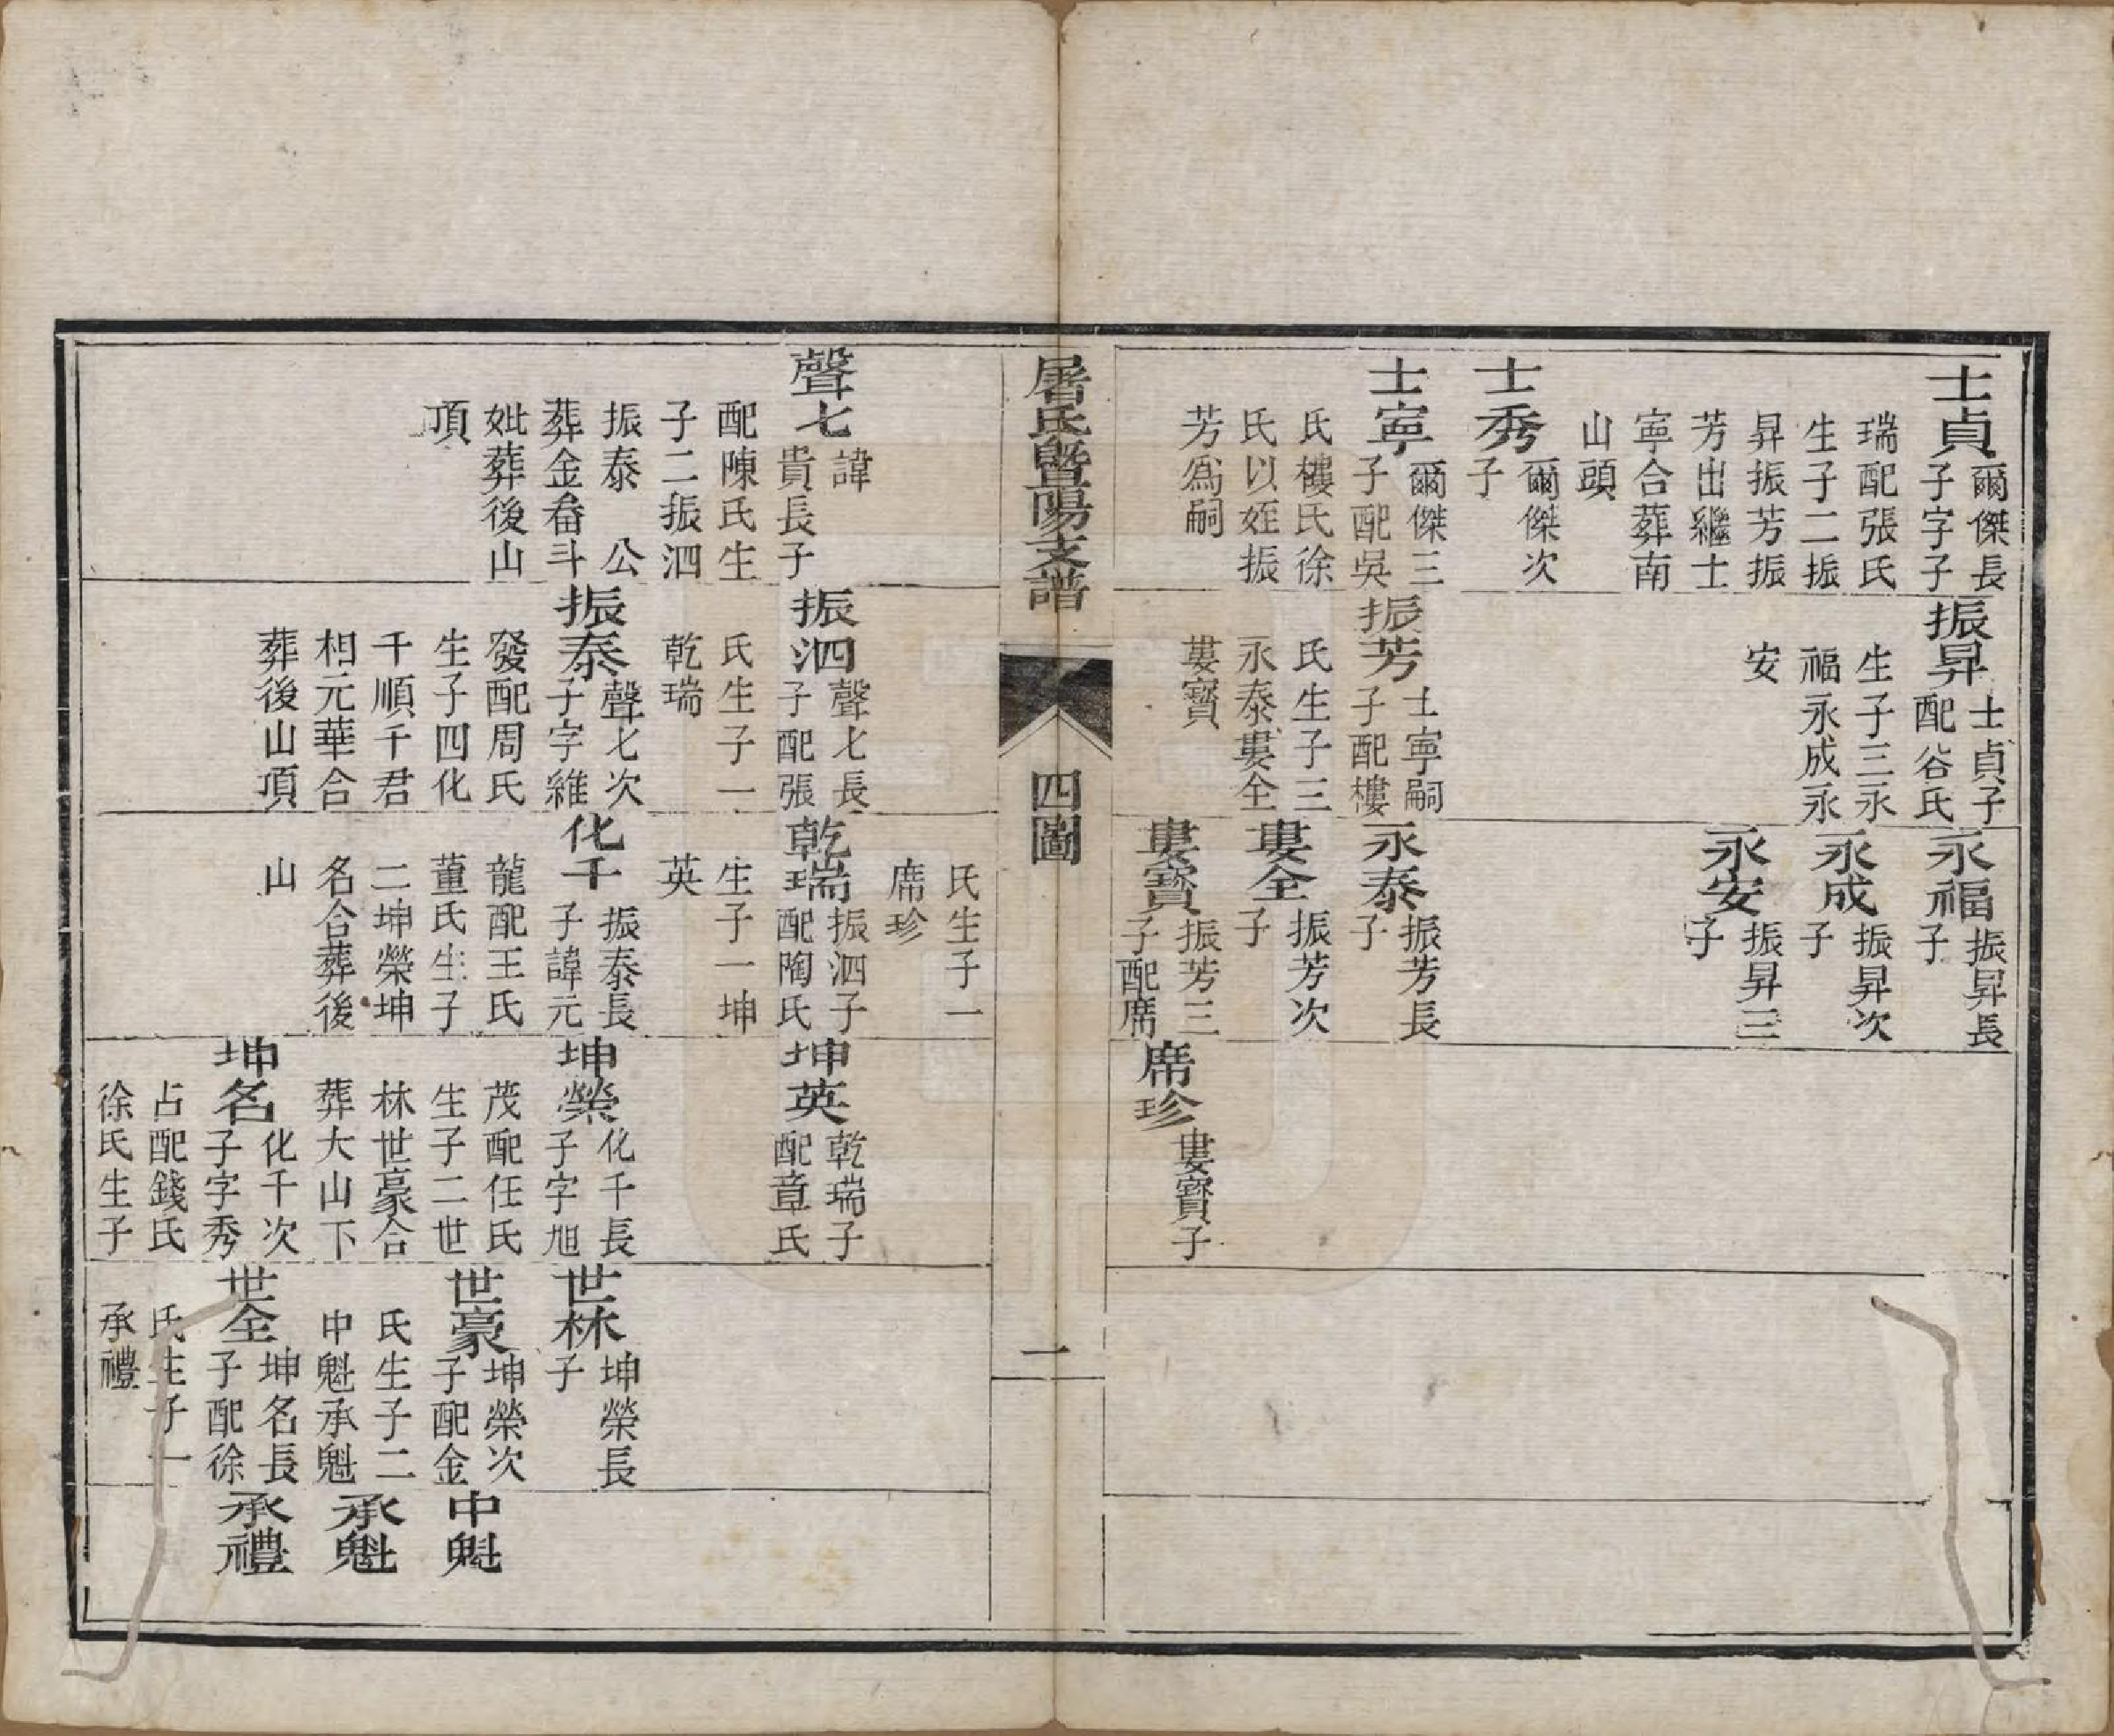 士貞 爾傑長
子字子
瑞配張氏
生子二振
昇振芳振
芳出繼士
寧合葬南
山頭
士秀 爾傑次
子
士寧 爾傑三
子配吳
氏樓氏徐
氏以姪振
芳爲嗣
振昇 士貞子
配谷氏
生子三永
福永成永
安
振芳 士寧嗣
子配樓
氏生子三
永泰婁全
婁寶
永福 振昇長
子
永成 振昇次
子
永安 振昇三
子
永泰 振芳長
子
婁全 振芳次
子
婁寶 振芳三
子配席
席珍 婁寶子
屠氏暨陽支譜
四圖
一
聲七 諱
貴長子
配陳氏生
子二振泗
振泰 公
葬金畨斗
妣葬後山
頂
振泗 聲七長
子配張
氏生子一
乾瑞
振泰 聲七次
子字維
發配周氏
生子四化
千順千君
相元華合
葬後山頂
氏生子一
席珍
乾瑞 振泗子
配陶氏
生子一坤
英
化千 振泰長
子諱元
龍配王氏
董氏生子
二坤榮坤
名合葬後
山
坤英 乾瑞子
配章氏
坤榮 化千長
子字旭
茂配任氏
生子二世
林世豪合
葬大山下
坤名 化千次
子字秀
占配錢氏
徐氏生子
世林 坤榮長
子
世豪 坤榮次
子配金
氏生子二
中魁承魁
世全 坤名長
子配徐
氏生子一
承禮
中魁
承魁
承禮